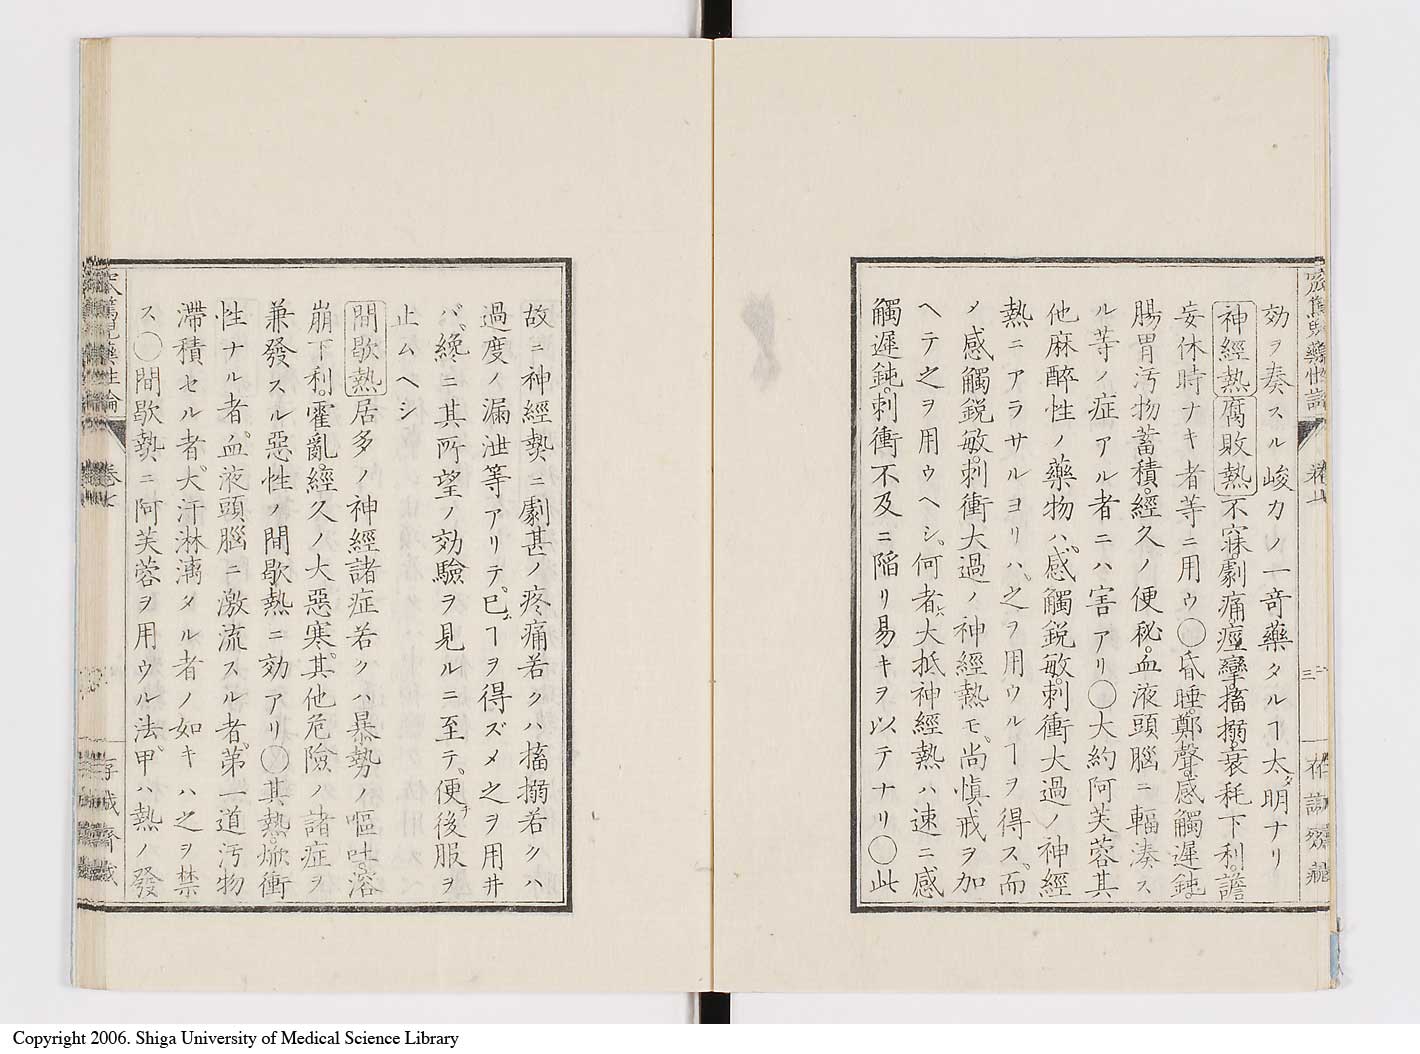 効ヲ奏スル峻カノ一奇藥タルヿ太タ明ナリ
神經熱 腐敗熱 不寐。劇痛。痙攣。搐搦。衰耗下利。譫
妄休時ナキ者等ニ用ウ◯昏睡。鄭聲。感觸遲鈍。
腸胃汚物蓄積。經久ノ便秘。血液頭腦ニ輻湊ス
ル等ノ症アル者ニハ害アリ◯大約阿芙蓉其
他麻醉性ノ藥物ハ、感觸鋭敏。刺衝大過ノ神經
熱ニアラサルヨリハ、之ヲ用ウルヿヲ得ス。而
メ感觸鋭敏。刺衝大過ノ神經熱モ、尚愼戒ヲ加
ヘテ之ヲ用ウヘシ。何者大抵神經熱ハ速ニ感
觸遲鈍。刺衝不及ニ陷リ易キヲ以テナリ◯此
故ニ神經熱ニ劇甚ノ疼痛若クハ搐搦若クハ
過度ノ漏泄等アリテ、已ムヿヲ得ズメ之ヲ用井
バ、纔ニ其所望ノ効驗ヲ見ルニ至テ、便チ後服ヲ
止ムヘシ
間歇熱 居多ノ神經諸症若クハ暴勢ノ嘔吐。溶
崩下利。霍亂。經久ノ大惡寒。其他危險ノ諸症ヲ
兼發スル惡性ノ間歇熱ニ効アリ◯其熱。焮衝
性ナル者。血液頭腦ニ激流スル者。第一道汚物
滯積セル者。大汗淋漓タル者ノ如キハ之ヲ禁
ス◯間歇熱ニ阿芙蓉ヲ用ウル法、甲ハ熱ノ發
卷七
Copyright 2006. Shiga University of Medical Science Library